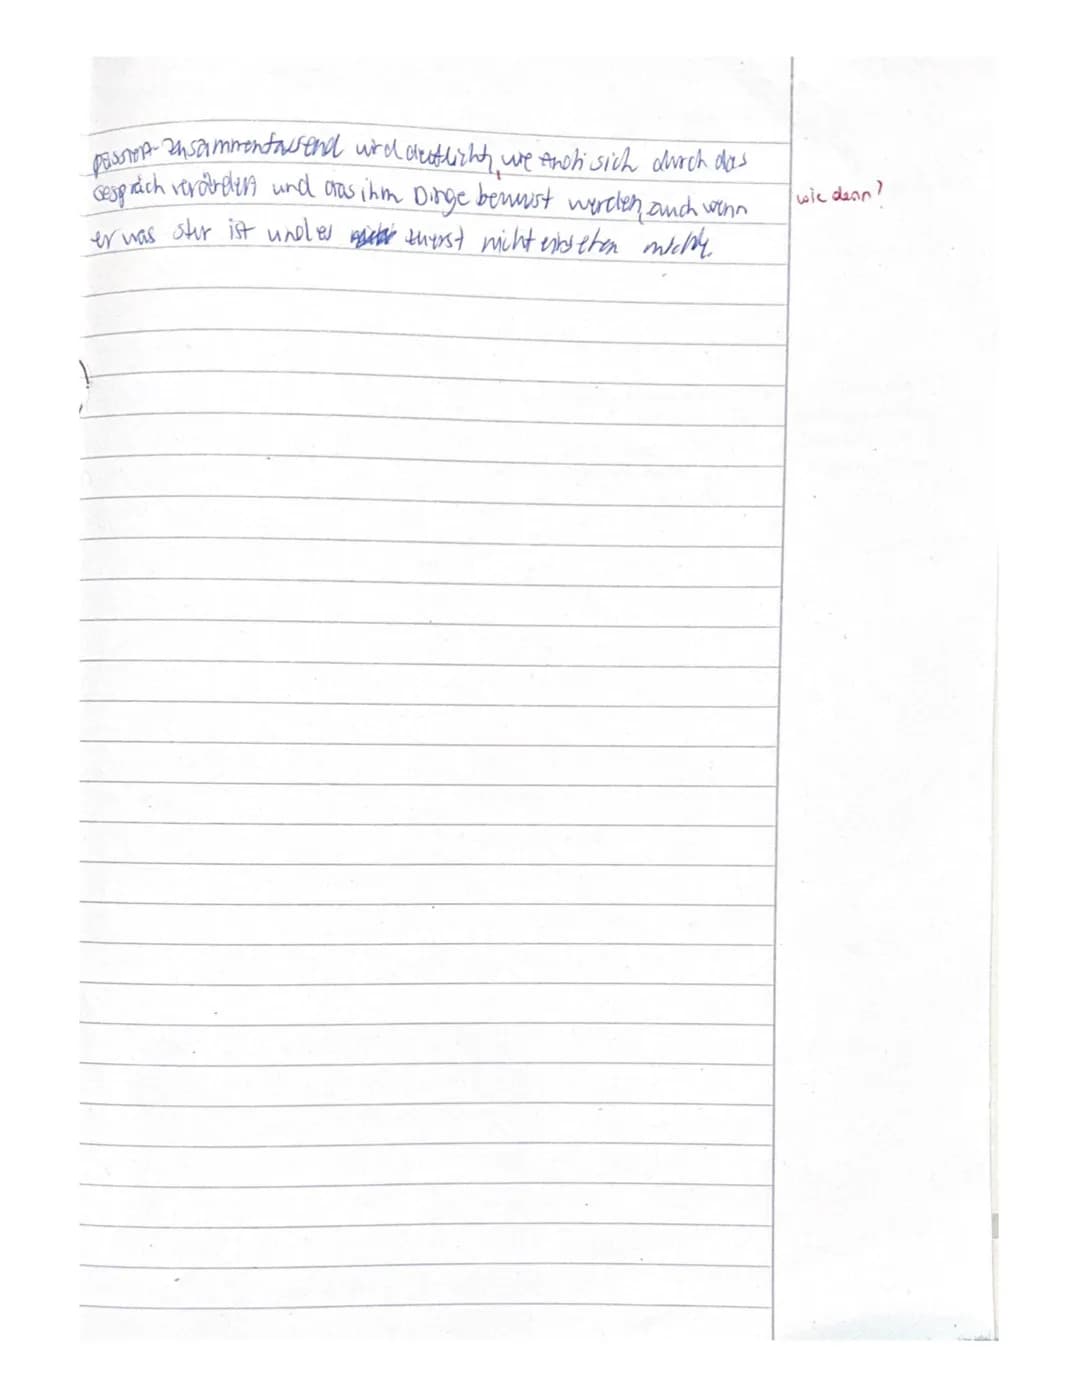 passiert. Zusammenfassend wird deutlich, wie Andi sich durch das
Gespräch verändert und das ihm Dinge bewusst werden, auch wenn
er was stur ist und es zuerst nicht einsehen möchte.
wie denn?